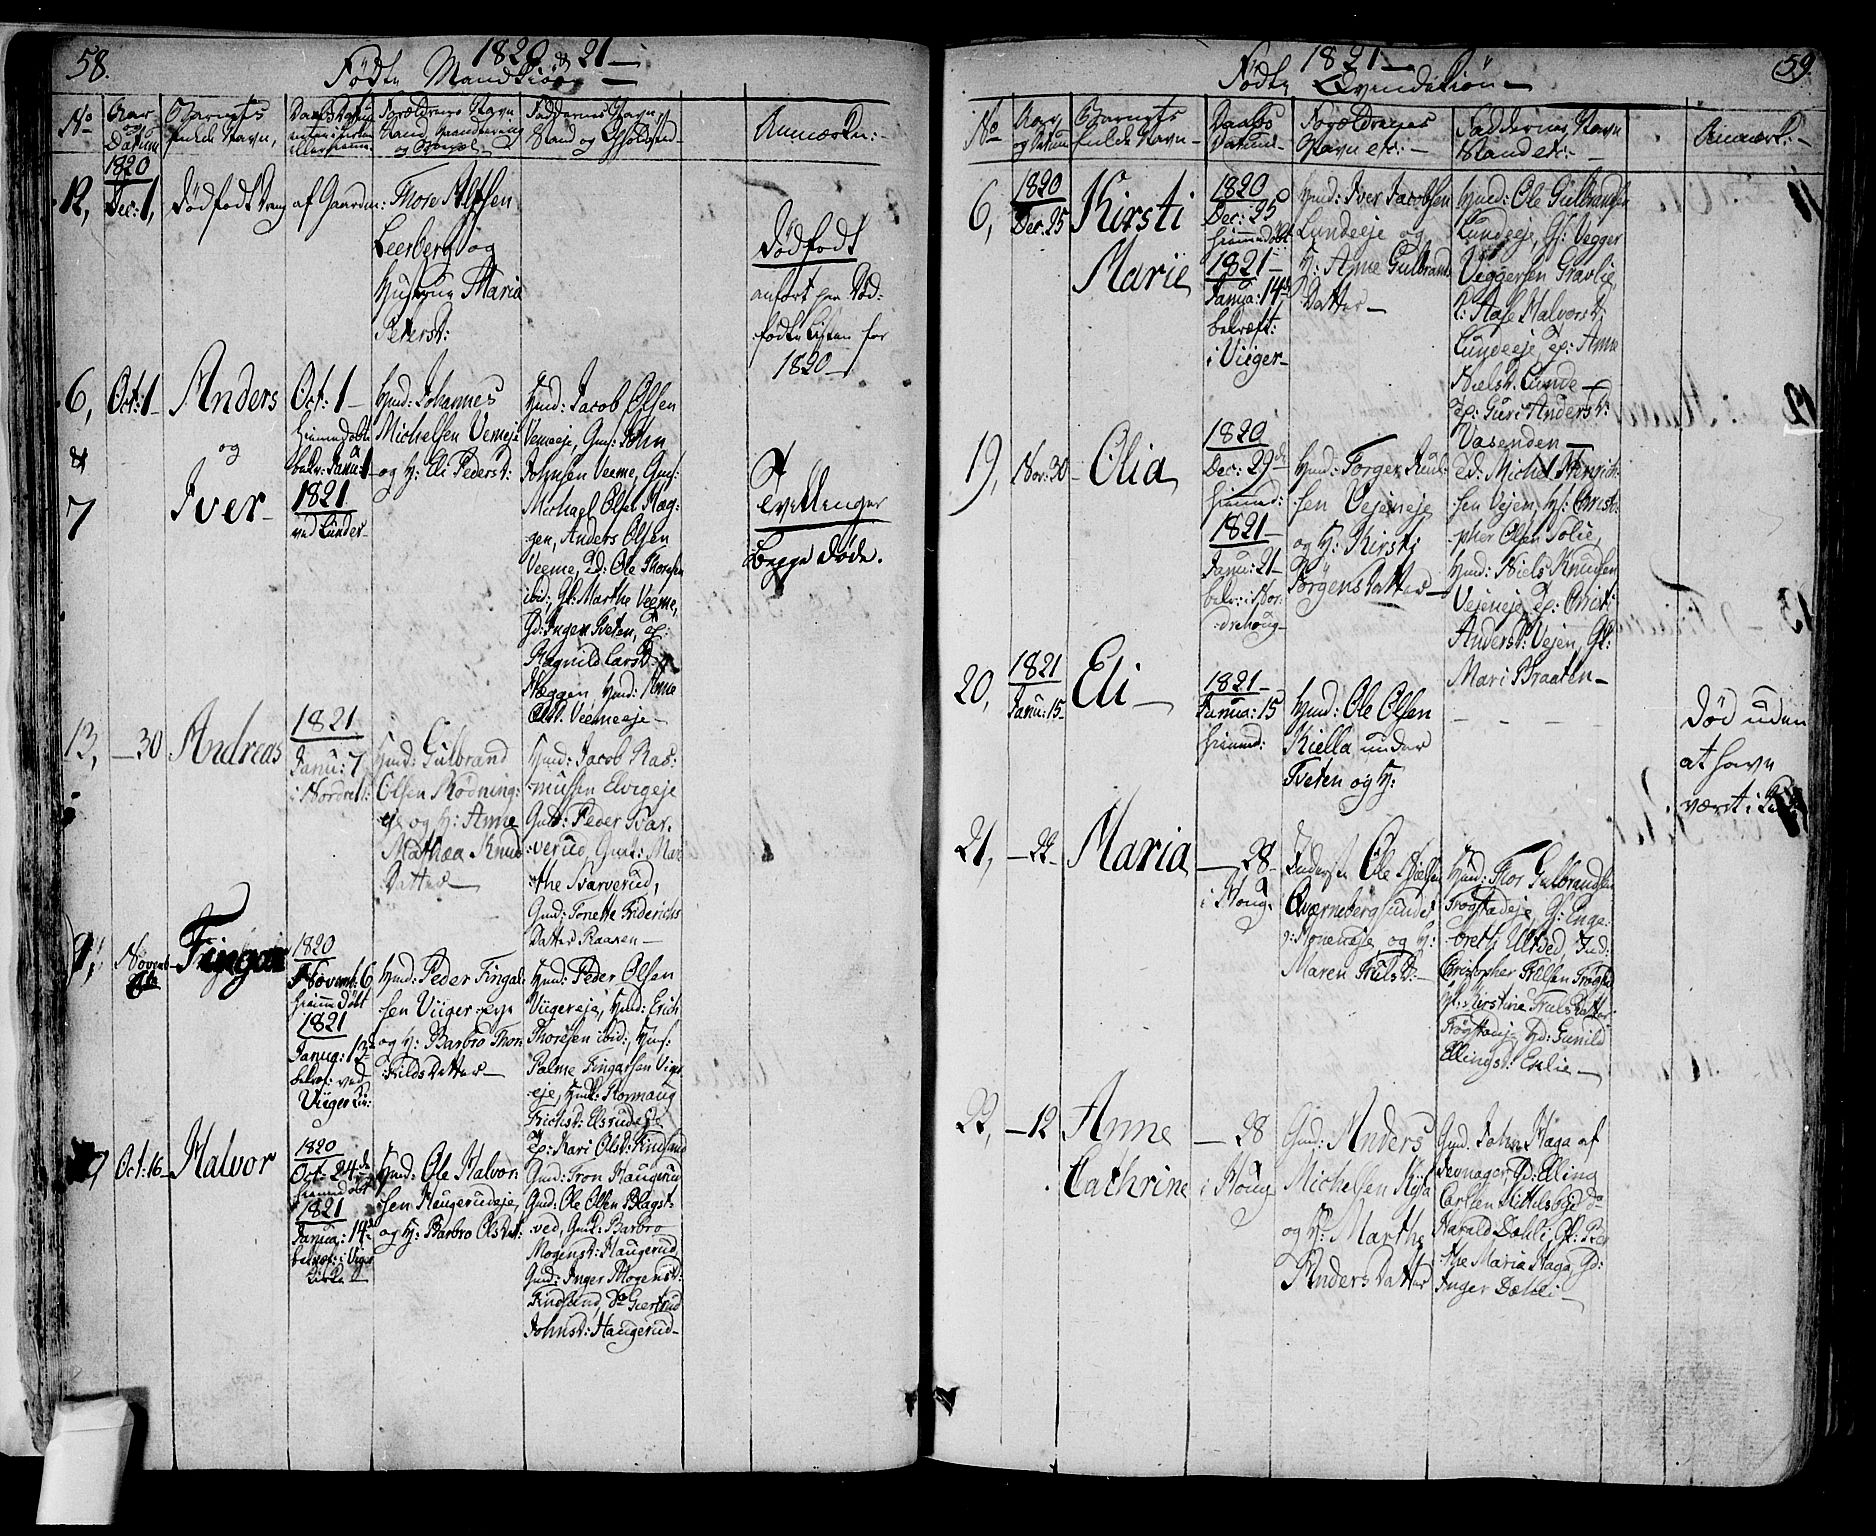 58.
1820 & 21 —
Fødte Mandkiøn —
No
Aar og Datum
Barnets fulde Navn,
Forældrenes Navn, Stand, Haandtering og Bopæl
Faddernes Navn, Stand og Opholdsted
Anmærkn:
1820
12, Dec: 1, Dødfødt Dreng af Gaardm: Thore Alfsen
Leerberg og
Hustrue Maria
Peterst:
Dødfødt
anført paa Død-
fødte Listen for
1820 —
6, Oct: 1 Anders
og
& 7 Iver
Oct: 1 —
hiemmedøbt
bekr: Janu: 1
1821
ved Lunder
Hmd: Johannes
Michelsen Vemeje
og H: Eli Pederst:
Hmd: Jacob Olsen
Vemeeje, Gmd: John
Johnsen Veeme, Gmd:
Michael Olsen Ræg-
gen, Anders Olsen
Veeme, Ed: Ole Thoresen
ibid:, Gk: Marthe Veeme,
Gd: Inger Tveten, Ep:
Ragnild Larsd:
Hæggen, Hmd: Anne
Olsd. Veemeeje —
Tvillinger
Begge døde.
13, — 30 Andreas
1821
Janu: 7
i Nordreh:
Hmd: Gulbrand
Olsen Rødning:
eje og H: Anne
Mathea Knud
Datter —
Hmd: Jacob Ras-
mussen Elvigeje
Gmd: Peder Svar-
verud, Gmk: Mar-
the Svarverud,
Gmd: Tonette Friderichs
Datter Raaen —
9, Novemb Fingar
1820
Novemb: 6
hiemmedøbt
1821
Janua: 13
bekræf: ved
Viiger Kir:
Hmd: Peder Fingal-
sen Viiger-eje
og H: Barbro Thor-
kilds Datter —
Hmd: Peder Olsen
Viigereje, Hmd: Erich
Thoresen ibid:, Huf:
Palme Fingarsen Viger
eje, Hmk: Rormaug
Erichst: Elsrudeje
Ep: Kari Olst: Knestad
Oct: 16 — Halvor
1820
Oct: 24de
hiemmedøbt
1821
Janua: 14
bekræf: i Viger
Kirke
Hmd: Ole Halvor-
sen Haugerudeje,
og H: Barbro Ols Dat:
Gmd: Tron Haugerud
Gmd: Ole Olsen Blagst-
ved, Gmk: Barbro
Mogenst: Haugerud,
Gmd: Inger Mogenst:
Knestand, Do Giertrud
Johnst: Haugerud —
59.
1821 —
Fødte Qvindekiøn —
No
Aar og Datum
Barnets fulde Navn —
Daabs Datum —
Forældrenes Navn etc: —
Faddernes Navn Stand etc: —
Anmærk: —
6, 1820 Dec: 25 Kirsti
Marie
1820
Dec: 25
hiemmedøbt
1821 —
Janua: 14
bekræft:
i Viiger —
Hmd: Iver Jacobsen
Lundeeje og
H: Anne Gulbrands
Datter —
Hmd: Ole Gulbrandsen
Lundeeje, Gf: Vegger
Veggersen Gravlie
K: Aase Halvorst:
Lundeeje, Ep: Anne
Nielst: Lunde —
Ep: Guri Anderst:
Vasenden —
19, Nov: 30 Olia
1820
Dec: 29de
hiemmed:
1821 —
Janu: 21
bekr: i Nor-
drehoug —
Hmd: Torger Paul-
sen Vejeneje
og H: Kirsti
Jørgens Datter —
Ed: Michel Henrich-
sen Vejen, Hf: Christ-
pher Olsen Solie,
Hmd: Niels Knudsen
Vejeneje, Ep: Christi
Anderst: Vejen, Gk:
Mari Braaten —
20, 1821 Janu: 15 Eli —
1821 —
Janua: 15
hiemmd:
Hmd: Ole Olsen
Kiella under
Tveten og H:
— — —
Død uden
at have
været i
21, — 22 — Maria — 28 —
i Houg.
Inderste Ole Nielsen
Qværnebergsundet
Moneneje og H:
Maren Truls D: —
Hmd: Thor Gulbrandsen
Trøgstadeje, G: Enge-
breth Ultved, Ind:
Christopher Trulsen Trøgstad
Gk: Kirstine Truls Datter
Trøgstadeje, Hd: Gunild
Ellingst: Enlie —
22, — 12 Anne
Cathrine
— 28
i Houg
Gmd: Anders
Michelsen Kysa
og H: Marthe
Anders Datter
Gmd. John Haga af
Jevnager, Gd: Elling
Carlsen Kittilsbye Do
Harald Dæhli, Gk: Ber-
the Maria Haga, Gd:
Inger Dæhli —